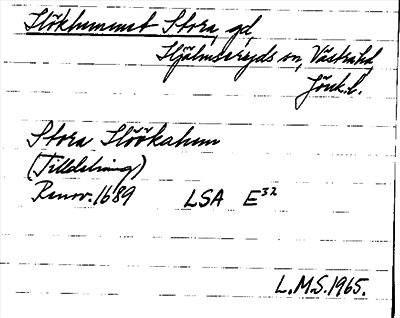 Slökhummet Stora, gd,
Hjälmseryds sn, Västra hd,
Jönk.l.
Stora Slöökahum
(Tilldelning)
Renov. 1689 LSA E32
L.M.S. 1965.